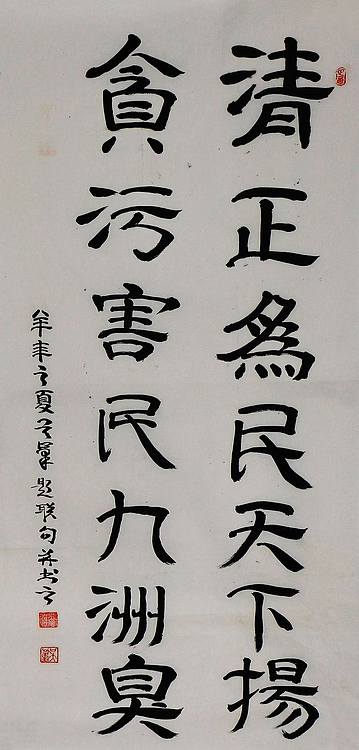 清正為民天下揚
貪污害民九洲臭
辛未之夏吴鼐題联句并书之